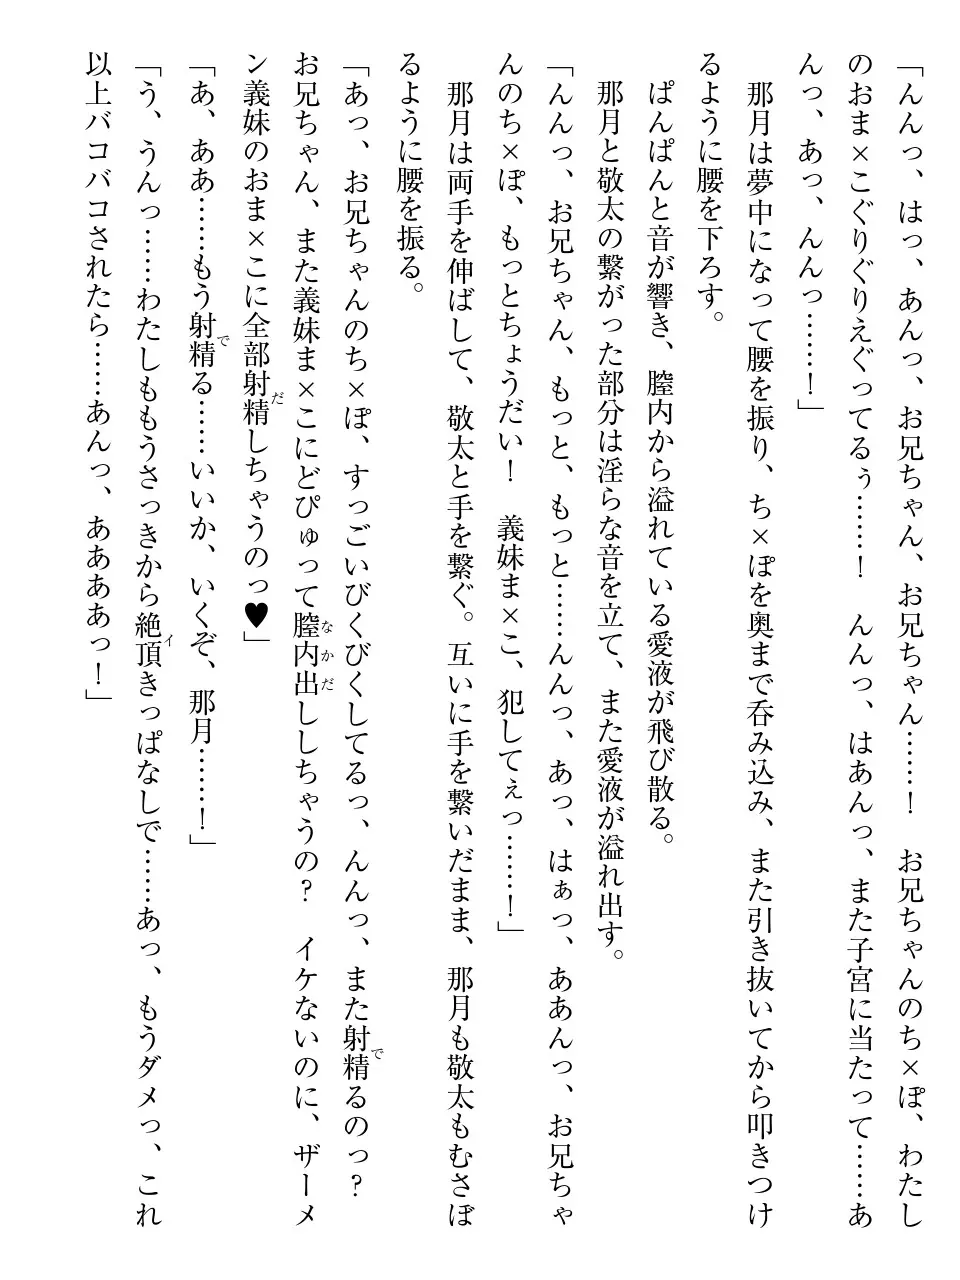 「んんっ、はっ、あんっ、お兄ちゃん、お兄ちゃん……！　お兄ちゃんのち×ぽ、わたし
のおま×こぐりぐりえぐってるぅ……！　んんっ、はあんっ、また子宮に当たって……あ
んっ、あっ、んんっ……！」
　那月は夢中になって腰を振り、ち×ぽを奥まで呑み込み、また引き抜いてから叩きつけ
るように腰を下ろす。
　ぱんぱんと音が響き、膣内から溢れている愛液が飛び散る。
　那月と敬太の繋がった部分は淫らな音を立て、また愛液が溢れ出す。
「んんっ、お兄ちゃん、もっと、もっと……んんっ、あっ、はぁっ、ああんっ、お兄ちゃ
んのち×ぽ、もっとちょうだい！　義妹ま×こ、犯してぇっ……！」
　那月は両手を伸ばして、敬太と手を繋ぐ。互いに手を繋いだまま、那月も敬太もむさぼ
るように腰を振る。
で
「あっ、お兄ちゃんのち×ぽ、すっごいびくびくしてるっ、んんっ、また射精るのっ？
なかだ
お兄ちゃん、また義妹ま×こにどぴゅって膣内出ししちゃうの？　イケないのに、ザーメ
だ
ン義妹のおま×こに全部射精しちゃうのっ♥」
で
「あ、ああ……もう射精る……いいか、いくぞ、那月……！」
イ
「う、うんっ……わたしももうさっきから絶頂きっぱなしで……あっ、もうダメっ、これ
以上バコバコされたら……あんっ、ああああっ！」